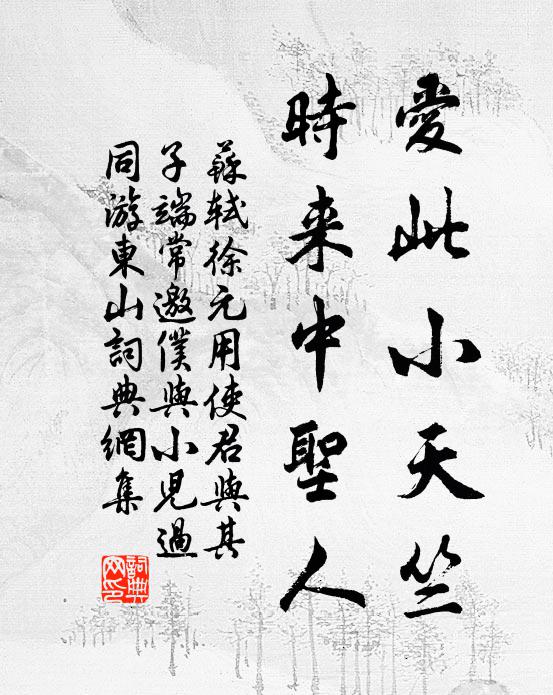 愛此小天竺
時来中聖人
蘇軾徐元用使君與其
子端常邀僕與小児過
同游東山詞典網集
詞典网印